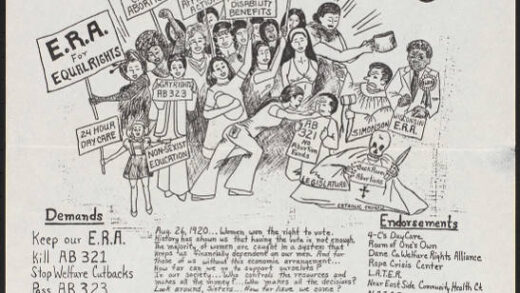 ABORTION
ACTION
DISABILITY
BENEFITS
E.R.A.
FOR
EQUAL RIGHTS
GAY RIGHTS
AB 323
24 HOUR
DAY CARE
NON-SEXIST
EDUCATION
AB
321
No
Abortion
Funds
LEGISLATURE
SIMONSON
WISCONSIN
E.R.A.
Back Room
Abortions
CATHOLIC CHURCH
Demands
Keep our E.R.A.
Kill AB 321
Stop Welfare Cutbacks
Pass AB 323
Aug. 26, 1920... Women won the right to vote.
History has shown us that having the vote is not enough.
The majority of women are caught in a system that
keeps us financially dependent on our men. And for
those of us without this economic arrangement:
How far can we go to support ourselves?
In our society... Who controls the resources and
makes all the money?... Who makes all the decisions?
Look around, Sisters... How far have we come?
Endorsements
4-C's Day Care
Room of One's Own
Dane Co. Welfare Rights Alliance
Rape Crisis Center
L.A.T.E.R.
Near East Side Community Health Ct.